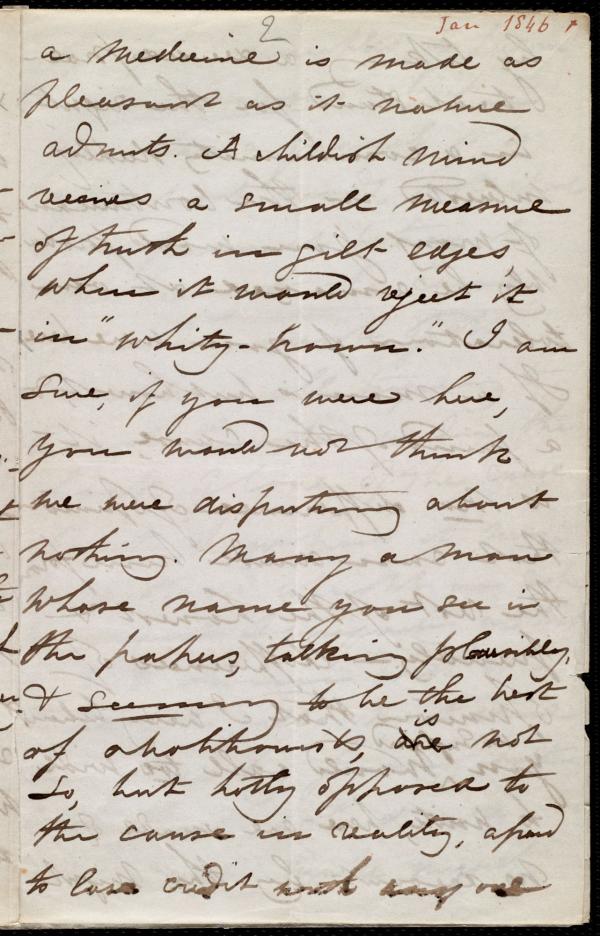 2
Jan 1846
a medicine is made as
pleasant as it nature
admits. A childish mind
receives a small measure
of truth in gilt edges,
when it would reject it
in "whity-brown." I am
sure, if you were here,
you would not think
we were disputing about
nothing. Many a man
whose name you see in
the papers, talking plausibly,
& seeming to be the best
of abolitionists, is not
so, but hotly opposed to
the cause in reality, afraid
to lose credit with any one